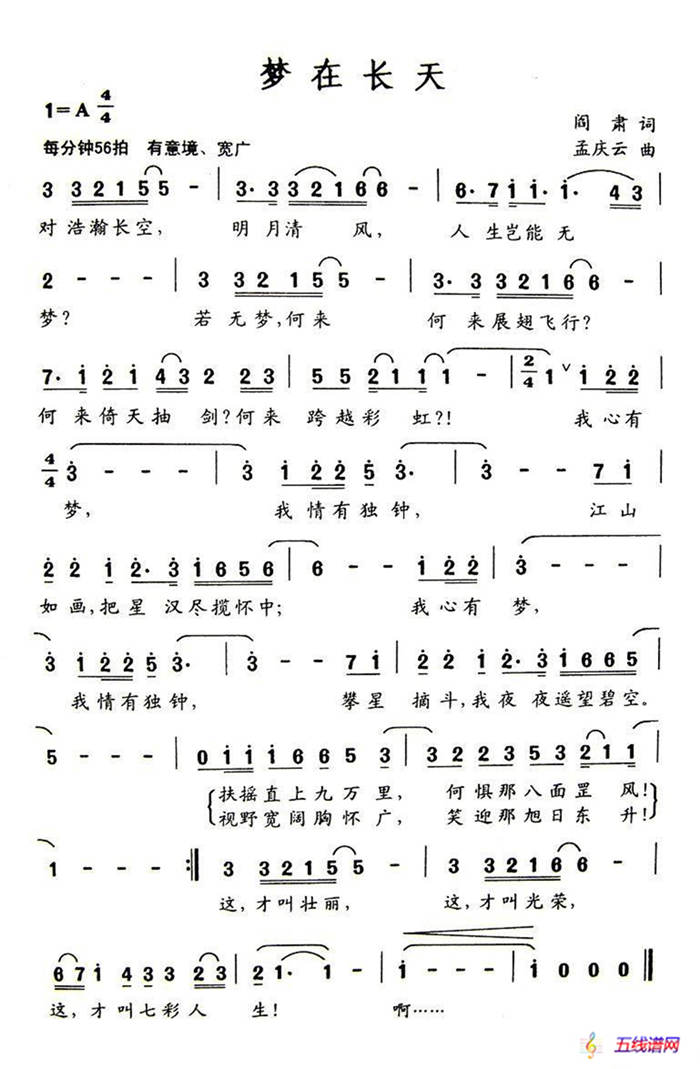 梦在长天
1=A 4/4
阎肃词
每分钟56拍 有意境、宽广
孟庆云 曲
3 3 2 1 5 5 - | 3· 3 3 2 1 6 6 - | 6· 7 i i· i· 4 3 |
对浩瀚长空, 明月清 风, 人生岂能无
2 - - - | 3 3 2 1 5 5 5 - | 3· 3 3 2 1 6 6 - |
梦? 若无梦,何来 何来展翅飞行?
7· i 2 i 4 3 2 2 3 | 5 5 2 1 1 1 - | 2/4 1 ∨ i 2 2 |
何来倚天抽 剑?何来 跨越彩 虹?! 我心有
4/4 3 - - - | 3 i 2 2 5 3· | 3 - - 7 i |
梦, 我情有独钟, 江山
2 2 i 2· 3 i 6 5 6 | 6 - - i 2 2 | 3 - - - |
如画,把星 汉尽揽怀中; 我心有 梦,
3 i 2 2 5 3· | 3 - - 7 i | 2 2 i 2· 3 i 6 6 5 |
我情有独钟, 攀星 摘斗,我夜 夜遥望碧空。
5 - - - | 0 i i i 6 6 5 3 | 3 2 2 3 5 3 2 1 1 |
扶摇直上九万里, 何惧那八面罡 风!
视野宽阔胸怀广, 笑迎那旭日东 升!
1 - - - :| 3 3 2 1 5 5 - | 3 3 2 1 6 6 - |
这,才叫壮丽, 这,才叫光荣,
6 7 i 4 3 3 2 3 | 2 1· 1 - | i - - - | i 0 0 0 ‖
这,才叫七彩人 生! 啊……
五线谱网